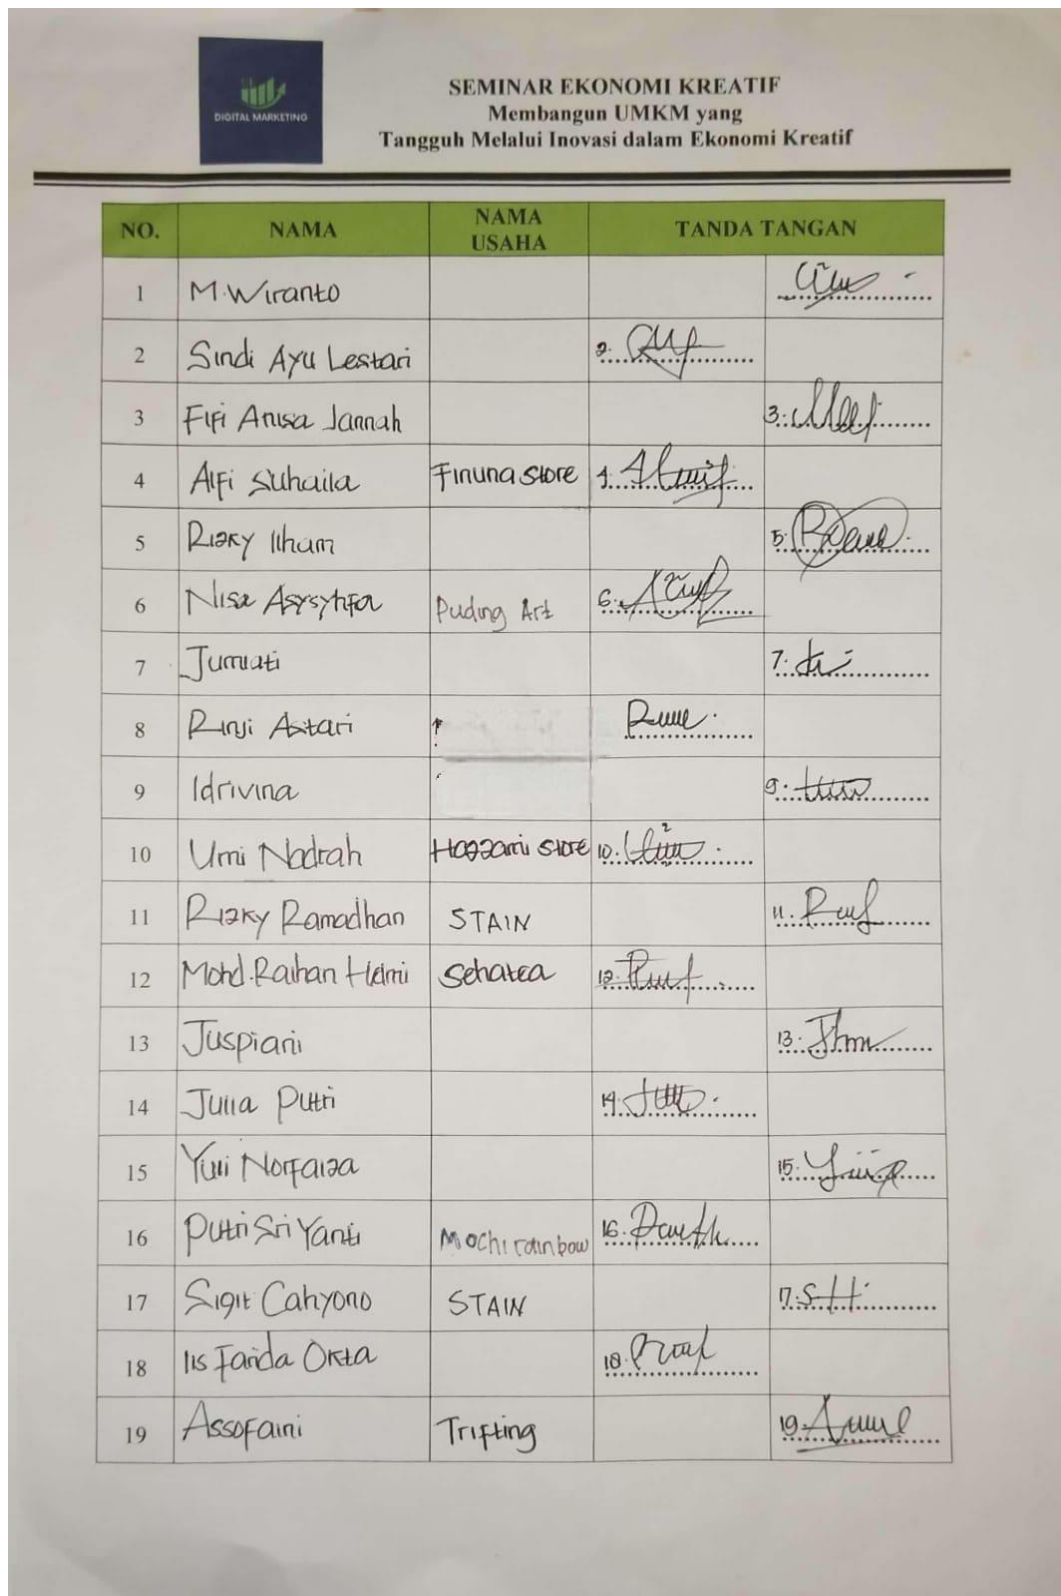 DIGITAL MARKETING
SEMINAR EKONOMI KREATIF
Membangun UMKM yang
Tangguh Melalui Inovasi dalam Ekonomi Kreatif
NO. NAMA NAMA USAHA TANDA TANGAN
1 M. Wiranto
2 Sindi Ayu Lestari 2.
3 Fifi Anisa Jannah 3.
4 Alfi Suhaila Finuna store 4.
5 Rizky Ilham 5.
6 Nisa Asysyifa Puding Art 6.
7 Jumiati 7.
8 Rinji Astari
9 Idrivina 9.
10 Umi Nadrah Hazzami store 10.
11 Rizky Ramadhan STAIN 11.
12 Mohd. Raihan Helmi Sehatea 12.
13 Juspiani 13.
14 Julia Putri 14.
15 Yuli Norfaiza 15.
16 Putri Sri Yanti Mochi rainbow 16.
17 Sigit Cahyono STAIN 17.
18 Iis Farida Okta 18.
19 Assofaini Trifting 19.